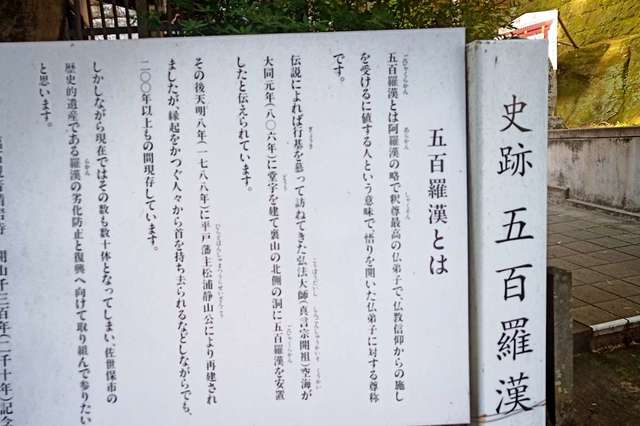 史跡 五百羅漢
五百羅漢とは
五百羅漢とは阿羅漢の略で釈尊最高の仏弟子で、仏教信仰からの施し
を受けるに値する人という意味で、悟りを開いた仏弟子に対する尊称
です。
伝説によれば行基を慕って訪ねてきた弘法大師(真言宗開祖)空海が
大同元年(八〇六年)に堂宇を建て裏山の北側の洞に五百羅漢を安置
したと伝えられています。
その後天明八年(一七八八年)に平戸藩主松浦静山公により再建され
ましたが、縁起をかつぐ人々から首を持ち去られるなどしながらでも、
二〇〇年以上もの間現存しています。
しかしながら現在ではその数も数十体となってしまい、佐世保市の
歴史的遺産である羅漢の劣化防止と復興へ向けて取り組んで参りたい
と思います。
開山千三百年(二千十年)記念